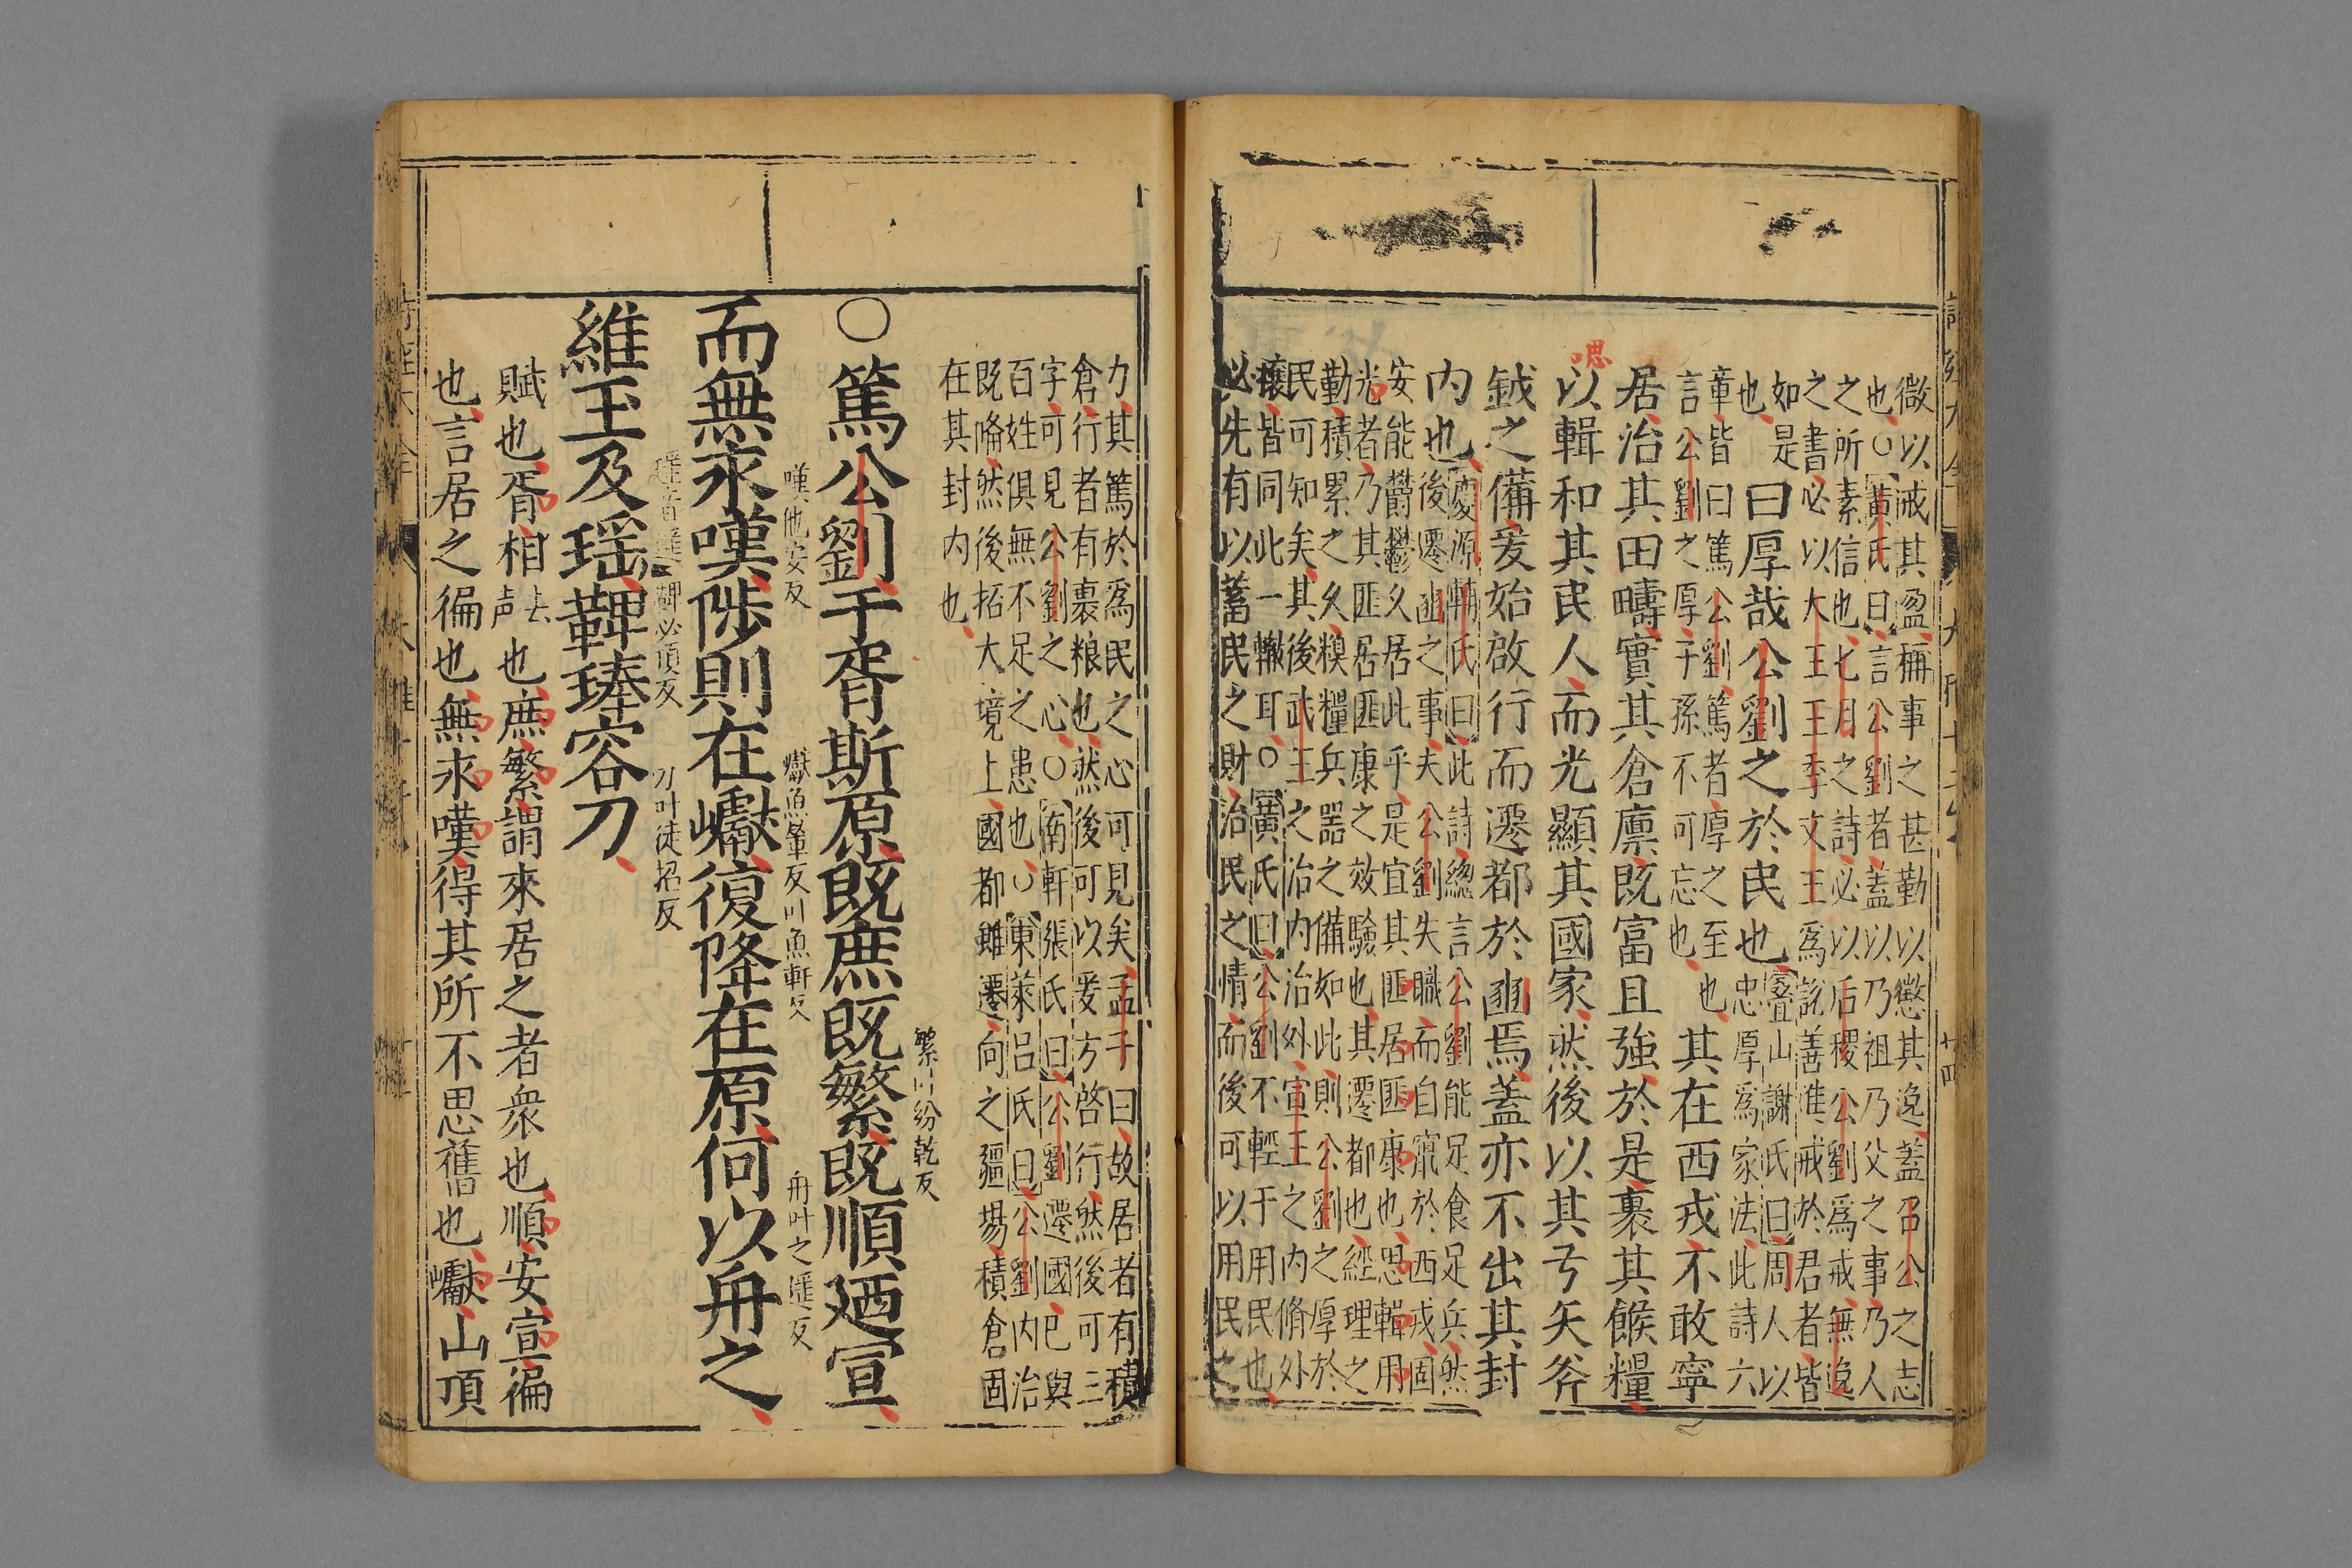 微以戒其盈稱事之甚勤以懲其逸蓋召公之志
也○黃氏曰言公劉者蓋以乃祖乃父之事乃人
之所素信也七月之詩必以后稷公劉為戒無逸
之書必以大王王季文王為説善進戒於君者皆
如是
也曰厚哉公劉之於民也疊山謝氏曰周人以
忠厚為家法此詩六
章皆曰篤公劉篤者厚之至也
言公劉之厚子孫不可忘也
其在西戎不敢寧
居治其田疇實其倉廩既富且強於是裹其餱糧
思以輯和其民人而光顯其國家然後以其弓矢斧
鉞之備爰始啟行而遷都於豳焉蓋亦不出其封
內也慶源輔氏曰此詩總言公劉能足食足兵然
後遷豳之事夫公劉失職而自竄於西戎固
安能鬱鬱久居此乎是宜其匪居匪康也思輯用
光者乃其匪居匪康之效驗也其遷都也經理之
勤積累之久糗糧兵器之備如此則公劉之厚於
民可知矣其後武王之治內治外宣王之內脩外
攘皆同此一轍耳○黃氏曰公劉不輕于用民也
必先有以蓄民之財治民之情而後可以用民之
力其篤於為民之心可見矣孟子曰故居者有積
倉行者有裹粮也然後可以爰方啓行然後可三
字可見公劉之心○南軒張氏曰公劉遷國已與
百姓俱無不足之患也○東萊呂氏曰公劉內治
既備然後拓大境上國都雖遷向之疆場積倉固
在其封內也
○篤公劉于胥斯原既庶既繁既順廼宣
繁叶紛乾反
而無永嘆陟則在巘復降在原何以舟之
嘆他安反 巘魚輦反叶魚軒反 舟叶之遙反
維玉及瑤鞞琫容刀
瑤音遙 鞞必頂反 刀叶徒招反
賦也胥相去声也庶繁謂來居之者衆也順安宣徧
也言居之徧也無永嘆得其所不思舊也巘山頂